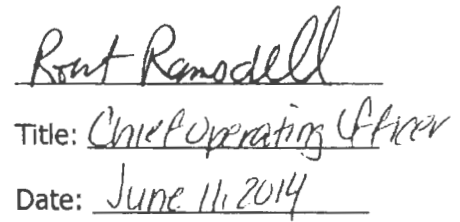 Ramsdell
Title: Chief Operating Officer
Date: June 11, 2014